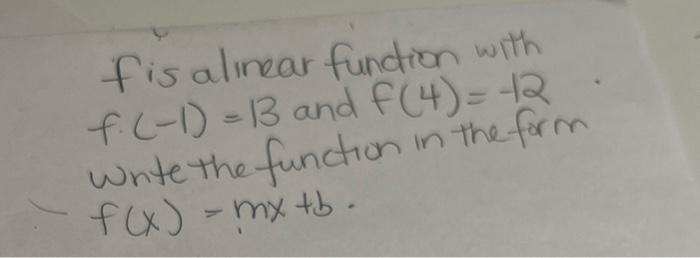 f is a linear function with
f(-1) = 13 and f(4) = -12
write the function in the form
f(x) = mx + b.